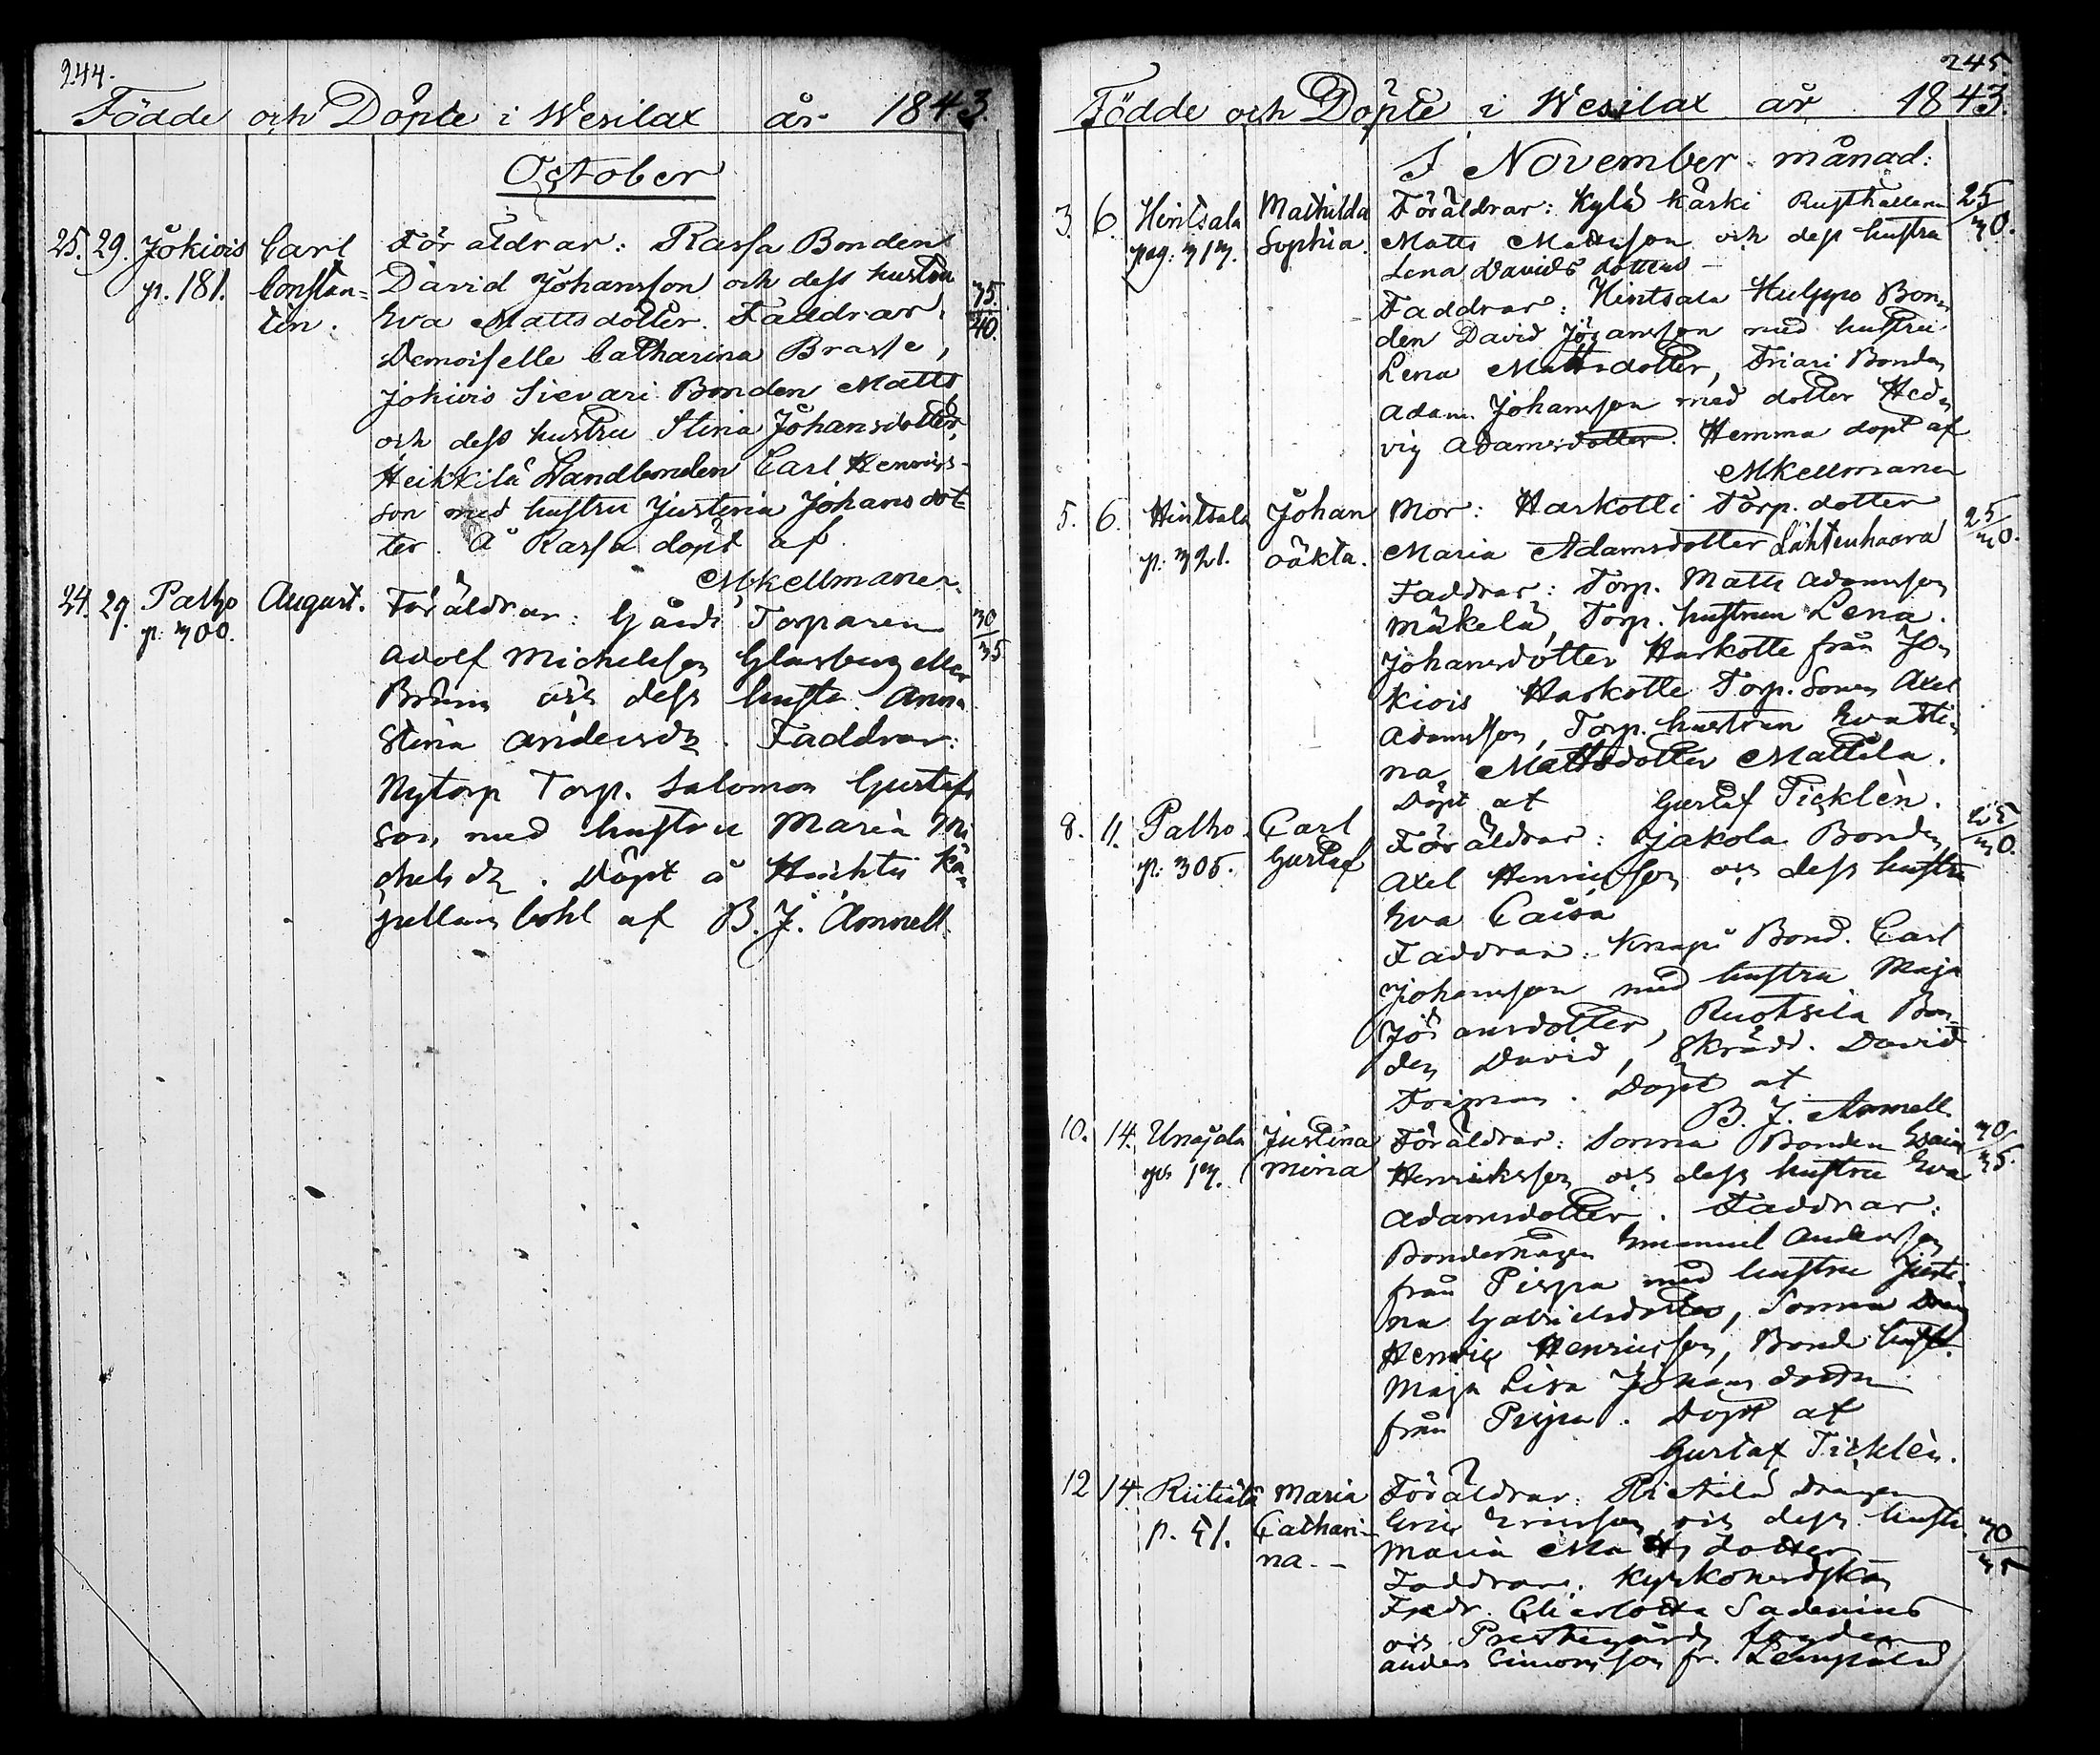 244.
Födde och Döpte i Wesilax år 1843.
October
25. 29. Jokiois Carl Föräldrar: Rassa Bonden
p. 181. Constan= David Johansson och dess hustru 35/40.
tin. Eva Mattsdotter. Faddrar:
Demoiselle Catharina Brasse,
Jokiois Sievari Bonden Matts
och dess hustru Stina Johansdotter,
Heikkilä Landbonden Carl Henrics-
son med hustru Justina Johansdot
ter. Å Rassa döpt af
M Kellmaner.
24. 29. Palho August. Föräldrar: Gårds Torparen 30/35
p. 300.
Adolf Michelsson Glasberg eller
Bruun och dess hustr. Anna
Stina Andersdr. Faddrar:
Nytorp Torp. Salomon Gustafs
son med hustru Maria Mi
chelsdr. Döpt å
bohl af B. J. Amnell.
245.
Födde och Döpte i Wesilax år 1843.
I November månad:
3. 6. Hintsala Mathilda Föräldrar: Kylä Käski Rusthållaren 25/30.
pag: 313. Sophia. Matts Mattsson och dess hustru
Lena Davids dotter
Faddrar: Hintsala Huppo Bon
den David Johansson med hustru
Lena Mattsdotter, Friari Bonden
Adam Johansson med dotter Hed
vig Adamsdotter. Hemma döpt af
M Kellmaner
5. 6. Hintsala Johan Mor: Harkotti Torp. dotter 25/30.
p: 321. oäkta. Maria Adamsdotter Lähtenhaara
Faddrar: Torp. Matts Adamsson
Mäkelä, Torp. hustrun Lena
Johansdotter Harkotte från Jo
kiois Harkotte Torp. Sonen Axel
Adamsson, Torp. hustrun Eva Sti
na Mattsdotter Mattila.
Döpt af Gustaf Ticklén.
8. 11. Palho Carl Föräldrar: Jakola Bonden 25/30.
p: 305. Gustaf Axel Henricsson och dess hustru
Eva Caisa
Faddrar: Knapi Bond. Carl
Johansson med hustru Maja
Johansdotter, Ruotsila Bon
den David, Skrädd. David
Friman. Döpt af
B. J. Amnell
10. 14. Unajala Justina Föräldrar: Sonna Bonden Esaias 30/35.
Mina Henriksson och dess hustru Eva
Adamsdotter. Faddrar:
Bondemågen Emanuel Andersson
från Pispa med hustru Justi
na Gabrielsdotter, Sonna Dräng
Henric Henricsson, Bonde hustr.
Maja Lisa Johans dotter
från Pispa. Döpt af
Gustaf Ticklén.
12 14. Maria Föräldrar: drängen
p. 51. Cathari- Eric Ericsson och dess hustr. 30/35
na.- Maria Matts dotter
Faddrar: Kyrkoherdskan
Fredr. Charlotta Sadenius
och Prestegårds fogden
Anders Simonsson fr. Lempälä